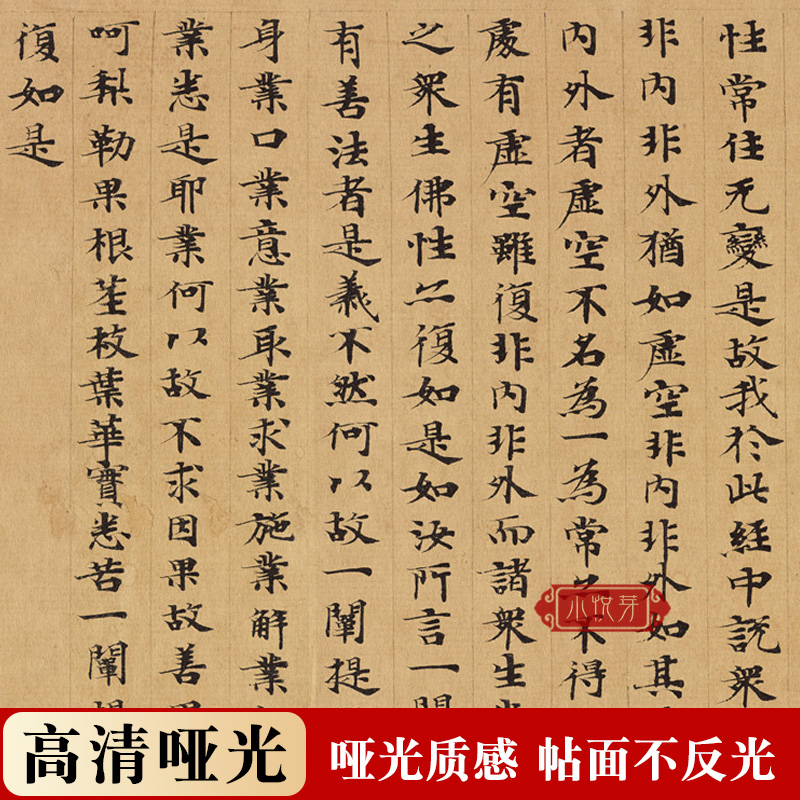 性常住无變是故我於此經中説衆
非内非外猶如虚空非内非外如其
内外者虚空不名為一為常不得
處有虚空雖復非内非外而諸衆生
之衆生佛性亦復如是如汝所言一
有善法者是義不然何以故一闡提
身業口業意業取業求業施業解業
業悉是耶業何以故不求因果故善
呵梨勒果根莖枝葉華實悉苦一闡
復如是
小悦芽
高清哑光
哑光质感 帖面不反光